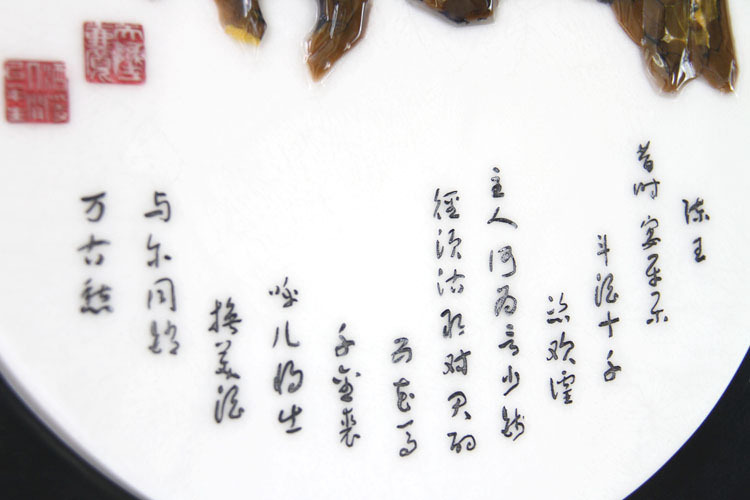 陈王
昔时宴平乐
斗酒十千
恣欢谑
主人何为言少钱
径须沽取对君酌
五花马
千金裘
呼儿将出
换美酒
与尔同销
万古愁